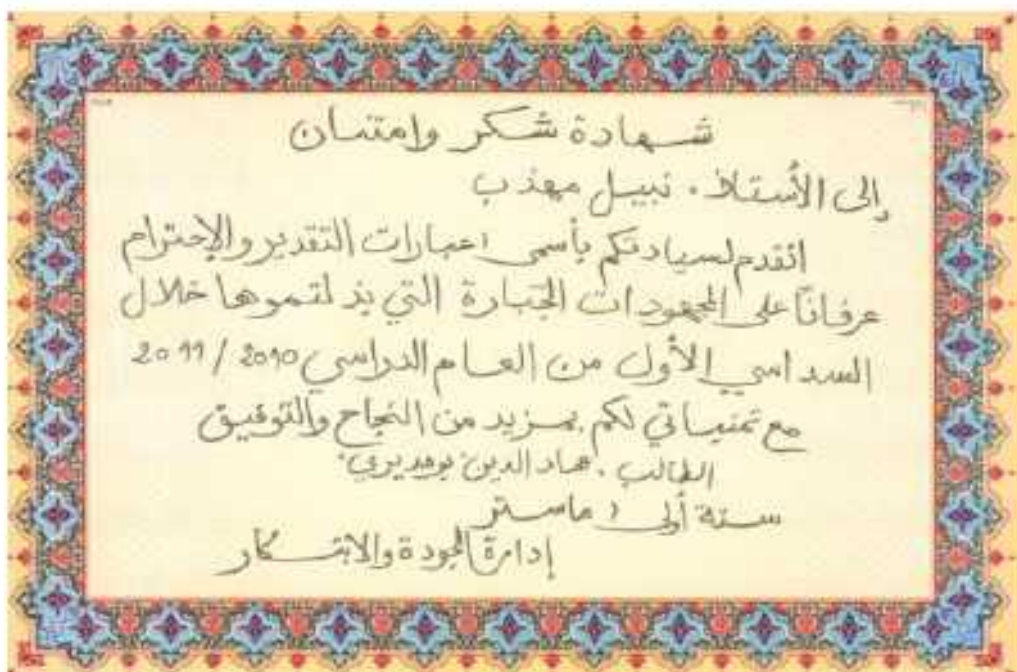 شهادة شكر وامتنان
إلى الأستاذ. نبيل مهذب
اتقدم لسيادتكم بأسمى عبارات التقدير والإحترام
عرفانًا على المجهودات الجبارة التي بذلتموها خلال
السداسي الأول من العام الدراسي 2010 / 2011
مع تمنياتي لكم بمزيد من النجاح والتوفيق
الطالب. عماد الدين
سنة أولى ماستر
إدارة الجودة والابتكار